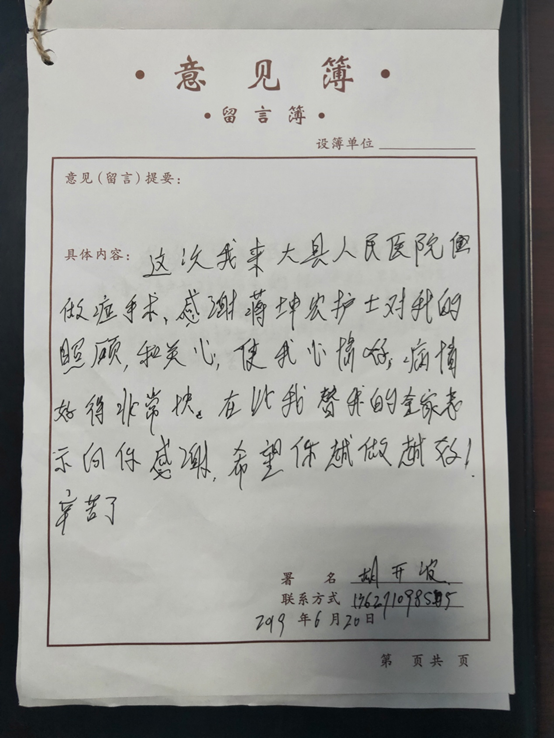 意见簿
留言簿
设簿单位
意见(留言)提要:
具体内容: 这次我来大县人民医院
做痘手术,感谢蒋坤宏护士对我的
照顾,和关心,使我心情好,病情
好得非常快。在此我替我的全家表
示向你感谢,希望你越做越好!
辛苦了
署 名 胡开波
联系方式
2019年6月20日
第 页共 页